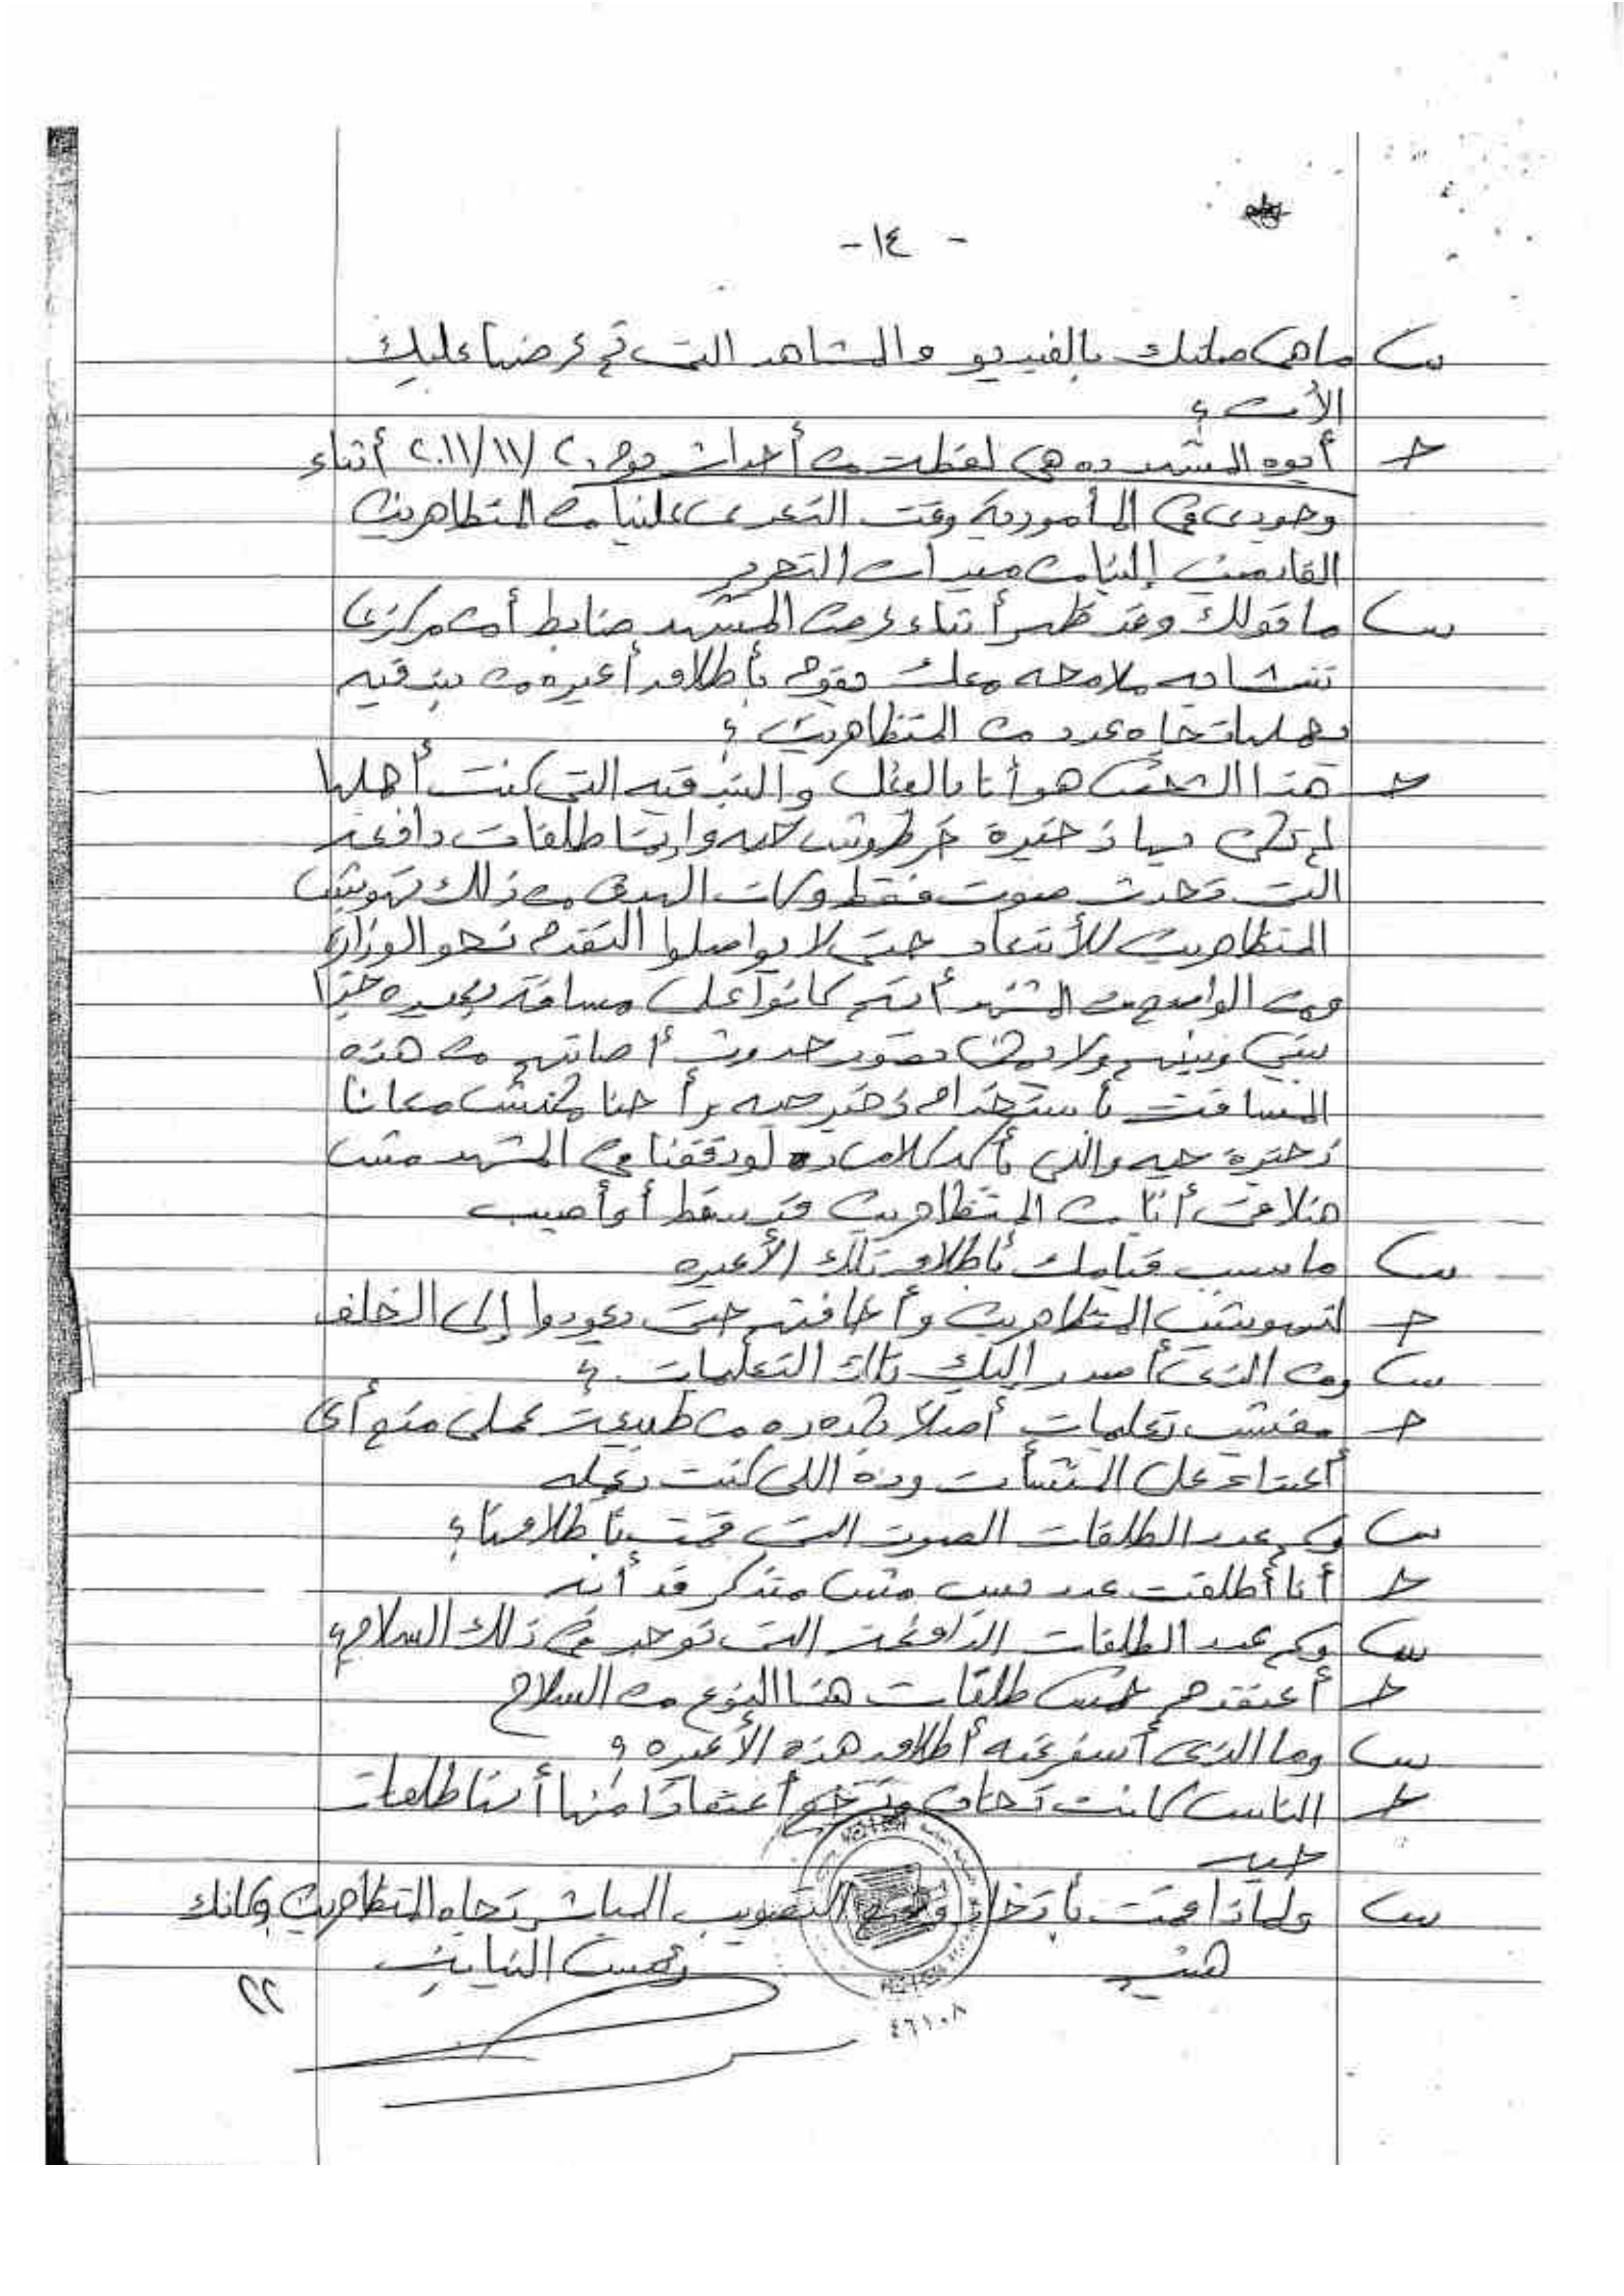 - ١٤ -
س ما هى صلتك بالفيديو والمشاهد التى تم عرضها عليك
الأن ؟
ج أيوه المشهد ده هى لقطت من أحداث يوم ٢٠/١١/٢٠١١ أثناء
وجودى فى المأمورية وقت التعدى علينا من المتظاهرين
القادمين إلينا من ميدان التحرير
س ما قولك وقد ظهر أثناء عرض المشهد ضابط أمن مركزى
تتشابه ملامحه معك يقوم بأطلاق أعيره من بندقيه
يحملها تجاه عدد من المتظاهرين ؟
ج هذا الشخص هو أنا بالفعل والبندقيه التى كنت أحملها
لم تكن بها ذخيرة خرطوش حيه وإنما طلقات دافعه
التى تحدث صوت فقط وكان الهدف من ذلك تهويش
المتظاهرين للأبتعاد حتى لا يواصلوا التقدم نحو الوزارة
ومن الواضح من المشهد أنهم كانوا على مسافة بعيده جدا
بينى وبينهم ولا يمكن تصور حدوث أصابتهم من هذه
المسافة بأستخدام ذخيره حيه وأحنا مكنش معانا
ذخيرة حيه والذى يأكد كلامى ده لو دققنا فى المشهد مش
هنلاقى أن من المتظاهرين قد سقط أو أصيب
س ما سبب قيامك بأطلاق تلك الأعيره
ج لتهويش المتظاهرين وأخافتهم حتى يعودوا إلى الخلف
س ومن الذى أصدر إليك تلك التعليمات ؟
ج مفيش تعليمات أصلاً بكده ده من طبيعة عملى منع أى
أعتداء على المنشأت وده اللى كنت بعمله
س وكم عدد الطلقات الصوت التى قمت بأطلاقها ؟
ج أنا أطلقت عدد بس مش متذكر قد أيه
س وكم عدد الطلقات الدافعة التى توجد فى ذلك السلاح ؟
ج أعتقد هم خمس طلقات هذا النوع من السلاح
س وما الذى أسفر عنه أطلاق هذه الأعيره ؟
ج الناس كانت تخاف وترجع أعتقادًا منها أنها طلقات
حيه
س ولماذا قمت بأتخاذ وضع التصويب المباشر تجاه المتظاهرين وكانك
رئيس النيابة
٢٢
٤٦١٠٨